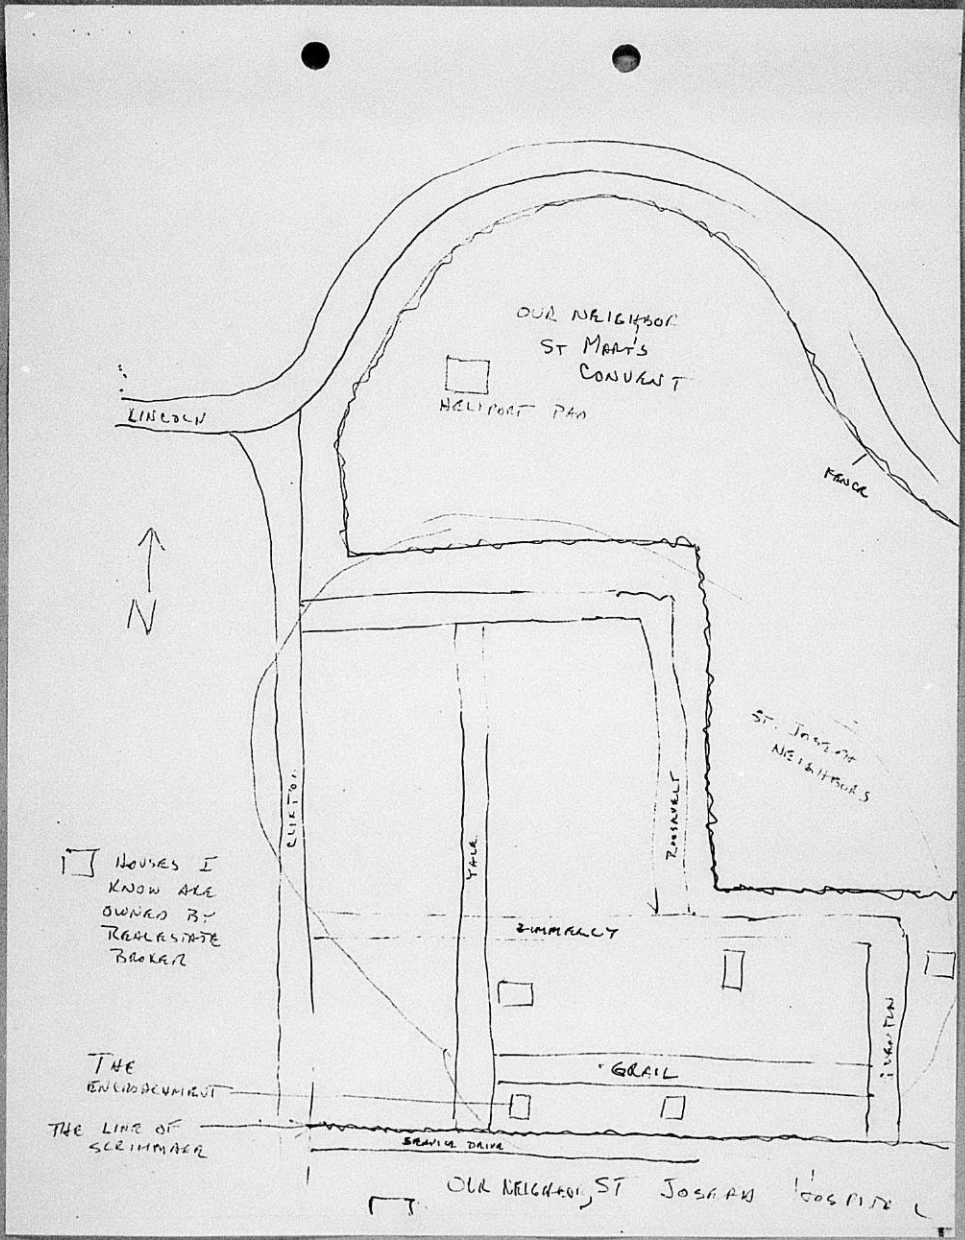 OUR NEIGHBOR
ST MARY'S
CONVENT
HELIPORT PAD
LINCOLN
FENCE
N
ST. JOSEPH
NEIGHBORS
CLIFTON
YALE
ROOSEVELT
HOUSES I
KNOW ARE
OWNED BY
REALESTATE
BROKER
ZIMMERLY
GRAIL
THE
ENCROACHMENT
THE LINE OF
SCRIMMAGE
SERVICE DRIVE
OUR NEIGHBOR, ST JOSEPH HOSPITAL